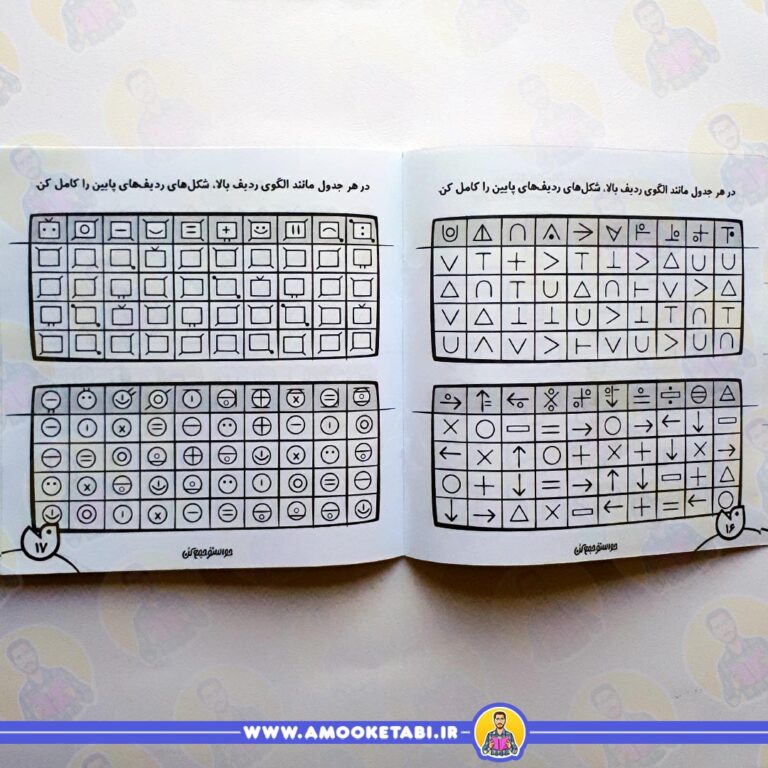 در هر جدول مانند الگوی ردیف بالا، شکل‌های ردیف‌های پایین را کامل کن.
۱۶
حواستو جمع کن
در هر جدول مانند الگوی ردیف بالا، شکل‌های ردیف‌های پایین را کامل کن.
۱۷
حواستو جمع کن
WWW.AMOOKETABI.IR